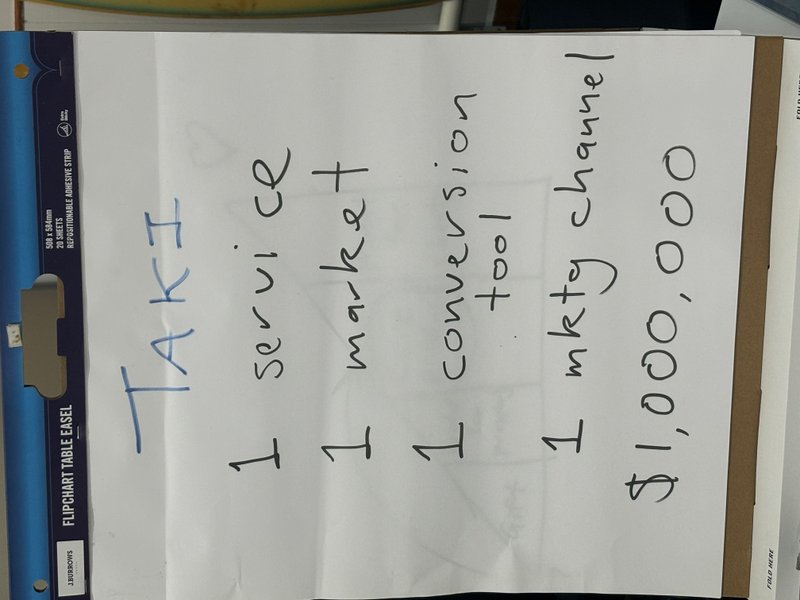 J.BURROWS
FLIPCHART TABLE EASEL
508 x 584mm
20 SHEETS
REPOSITIONABLE ADHESIVE STRIP
TAKI
1 service
1 market
1 conversion
tool
1 mktg channel
$1,000,000
FOLD HERE
FOLD HERE